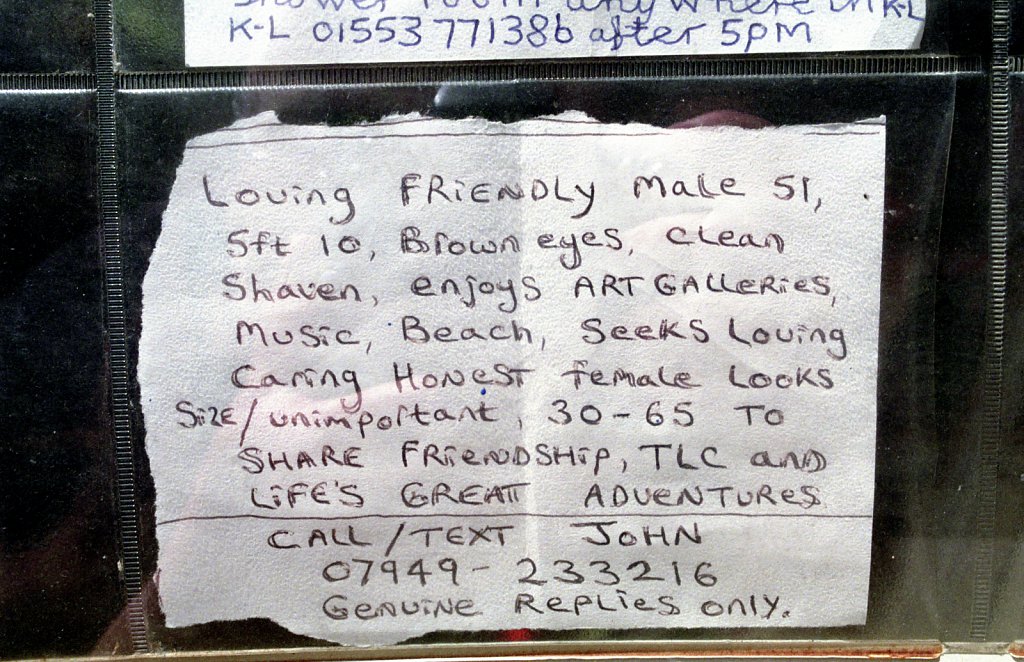 shower room anywhere in K-L
K-L 01553 771386 after 5PM
Loving FRiENDLy male 51,
5ft 10, Brown eyes, clean
Shaven, enjoys ART GALLERiES,
Music, Beach, Seeks Loving
Caring HONEST female Looks
SiZE/unimportant, 30-65 TO
SHARE FRiENDSHip, TLC and
LiFE'S GREAT ADVENTURES
CALL/TEXT JoHN
07949-233216
GENUiNE REPLiES only.